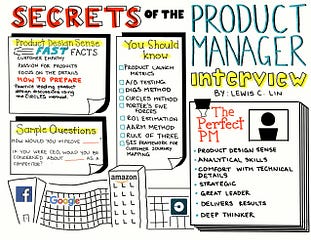 SECRETS OF THE PRODUCT MANAGER interview
BY: LEWIS C. LIN
Product Design Sense
FAST FACTS
CUSTOMER EMPATHY
PASSION FOR PRODUCTS
FOCUS ON THE DETAILS
HOW TO PREPARE
Practice leading product
design discussions using
the CIRCLES method.
Sample Questions
HOW WOULD YOU IMPROVE
IF YOU WERE CEO, WOULD YOU BE
CONCERNED ABOUT AS A
COMPETITOR?
You Should
know
PRODUCT LAUNCH
METRICS
A/B TESTING
DIGS METHOD
CIRCLES METHOD
PORTER'S FIVE
FORCES
ROI ESTIMATION
AARM METHOD
RULE OF THREE
FRAMEWORK FOR
CUSTOMER JOURNEY
MAPPING
The
Perfect
PM
PRODUCT DESIGN SENSE
ANALYTICAL SKILLS
COMFORT WITH TECHNICAL
DETAILS
STRATEGIC
GREAT LEADER
DELIVERS RESULTS
DEEP THINKER
f
Google
amazon